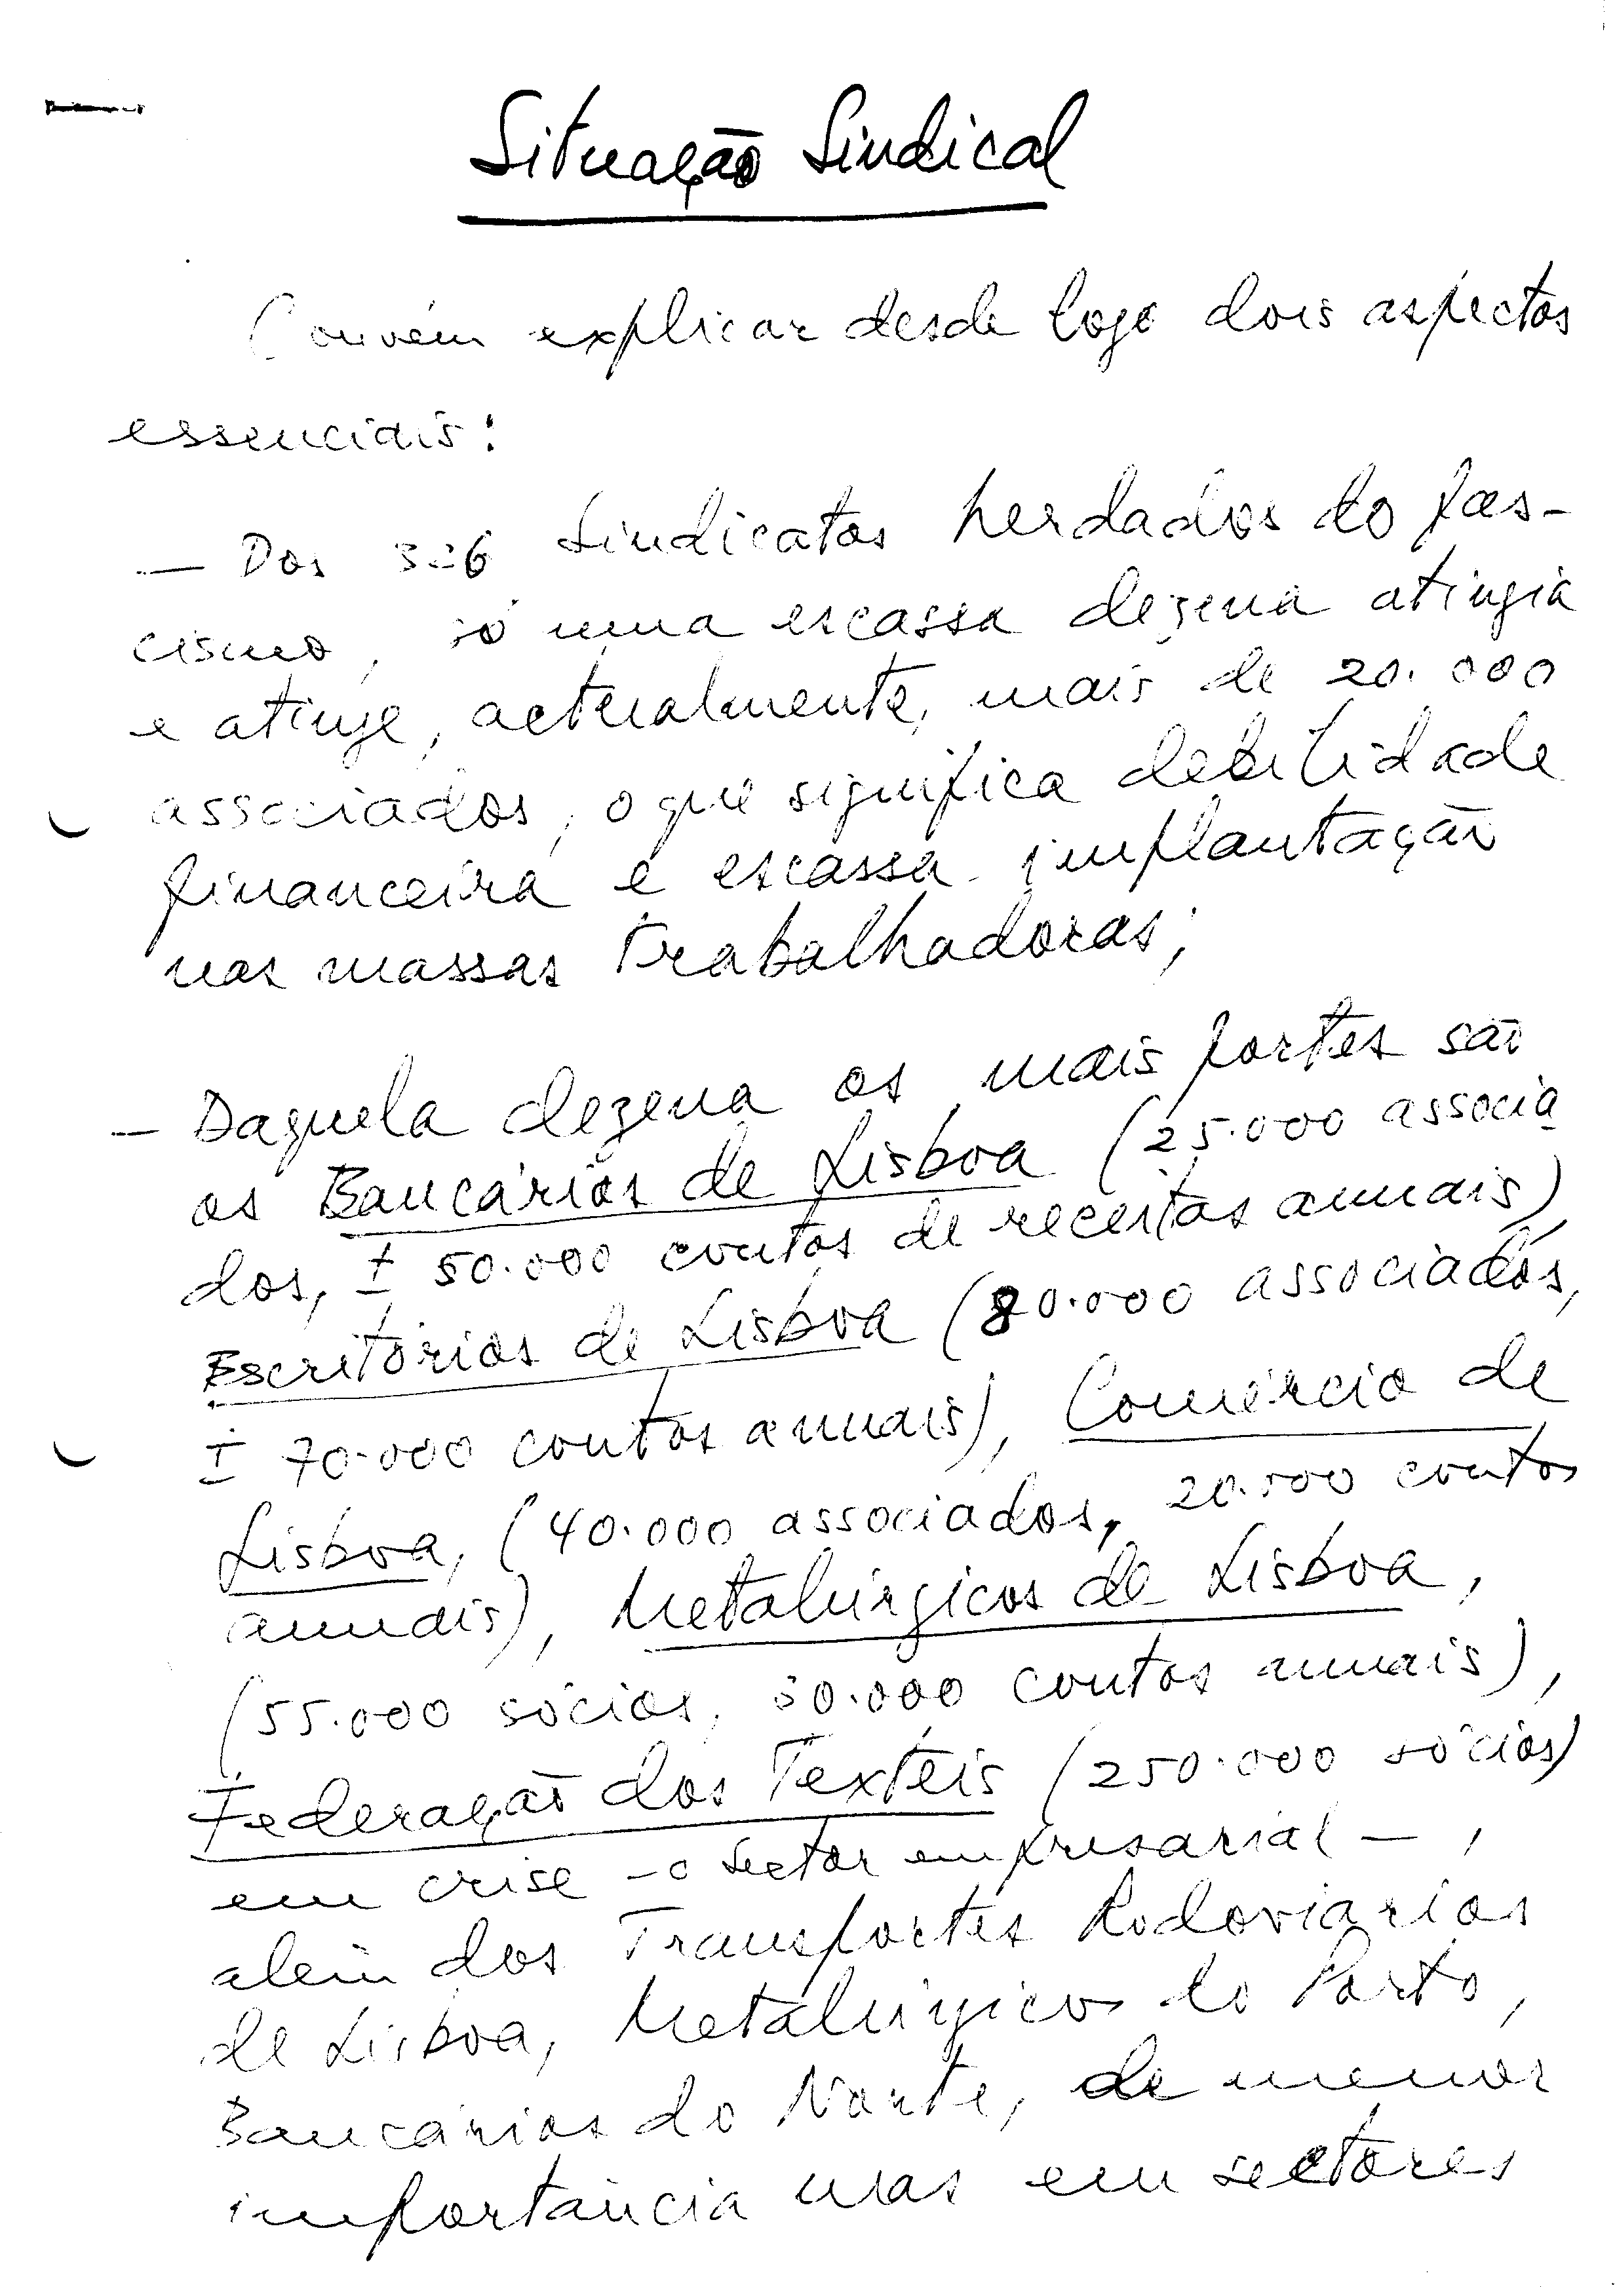 Situação Sindical
Convém explicar desde logo dois aspectos
essenciais:
— Dos Sindicatos herdados do fas-
cismo, só uma escassa dezena atingia
e atinge, actualmente, mais de 20.000
associados, o que significa debilidade
financeira e escassa implantação
nas massas trabalhadoras;
— Daquela dezena os mais fortes são
os Bancários de Lisboa (25.000 associa
dos, ± 50.000 contos de receitas anuais),
Escritórios de Lisboa (80.000 associados,
± 70.000 contos anuais), Comércio de
Lisboa, (40.000 associados, 20.000 contos
anuais), Metalúrgicos de Lisboa,
(55.000 sócios, contos anuais),
Federação dos Texteis (250.000 sócios)
em crise – o sector empresarial – ,
além dos Transportes Rodoviários
de Lisboa, Metalúrgicos do Porto,
Bancários do Norte, de menor
importância mas em sectores